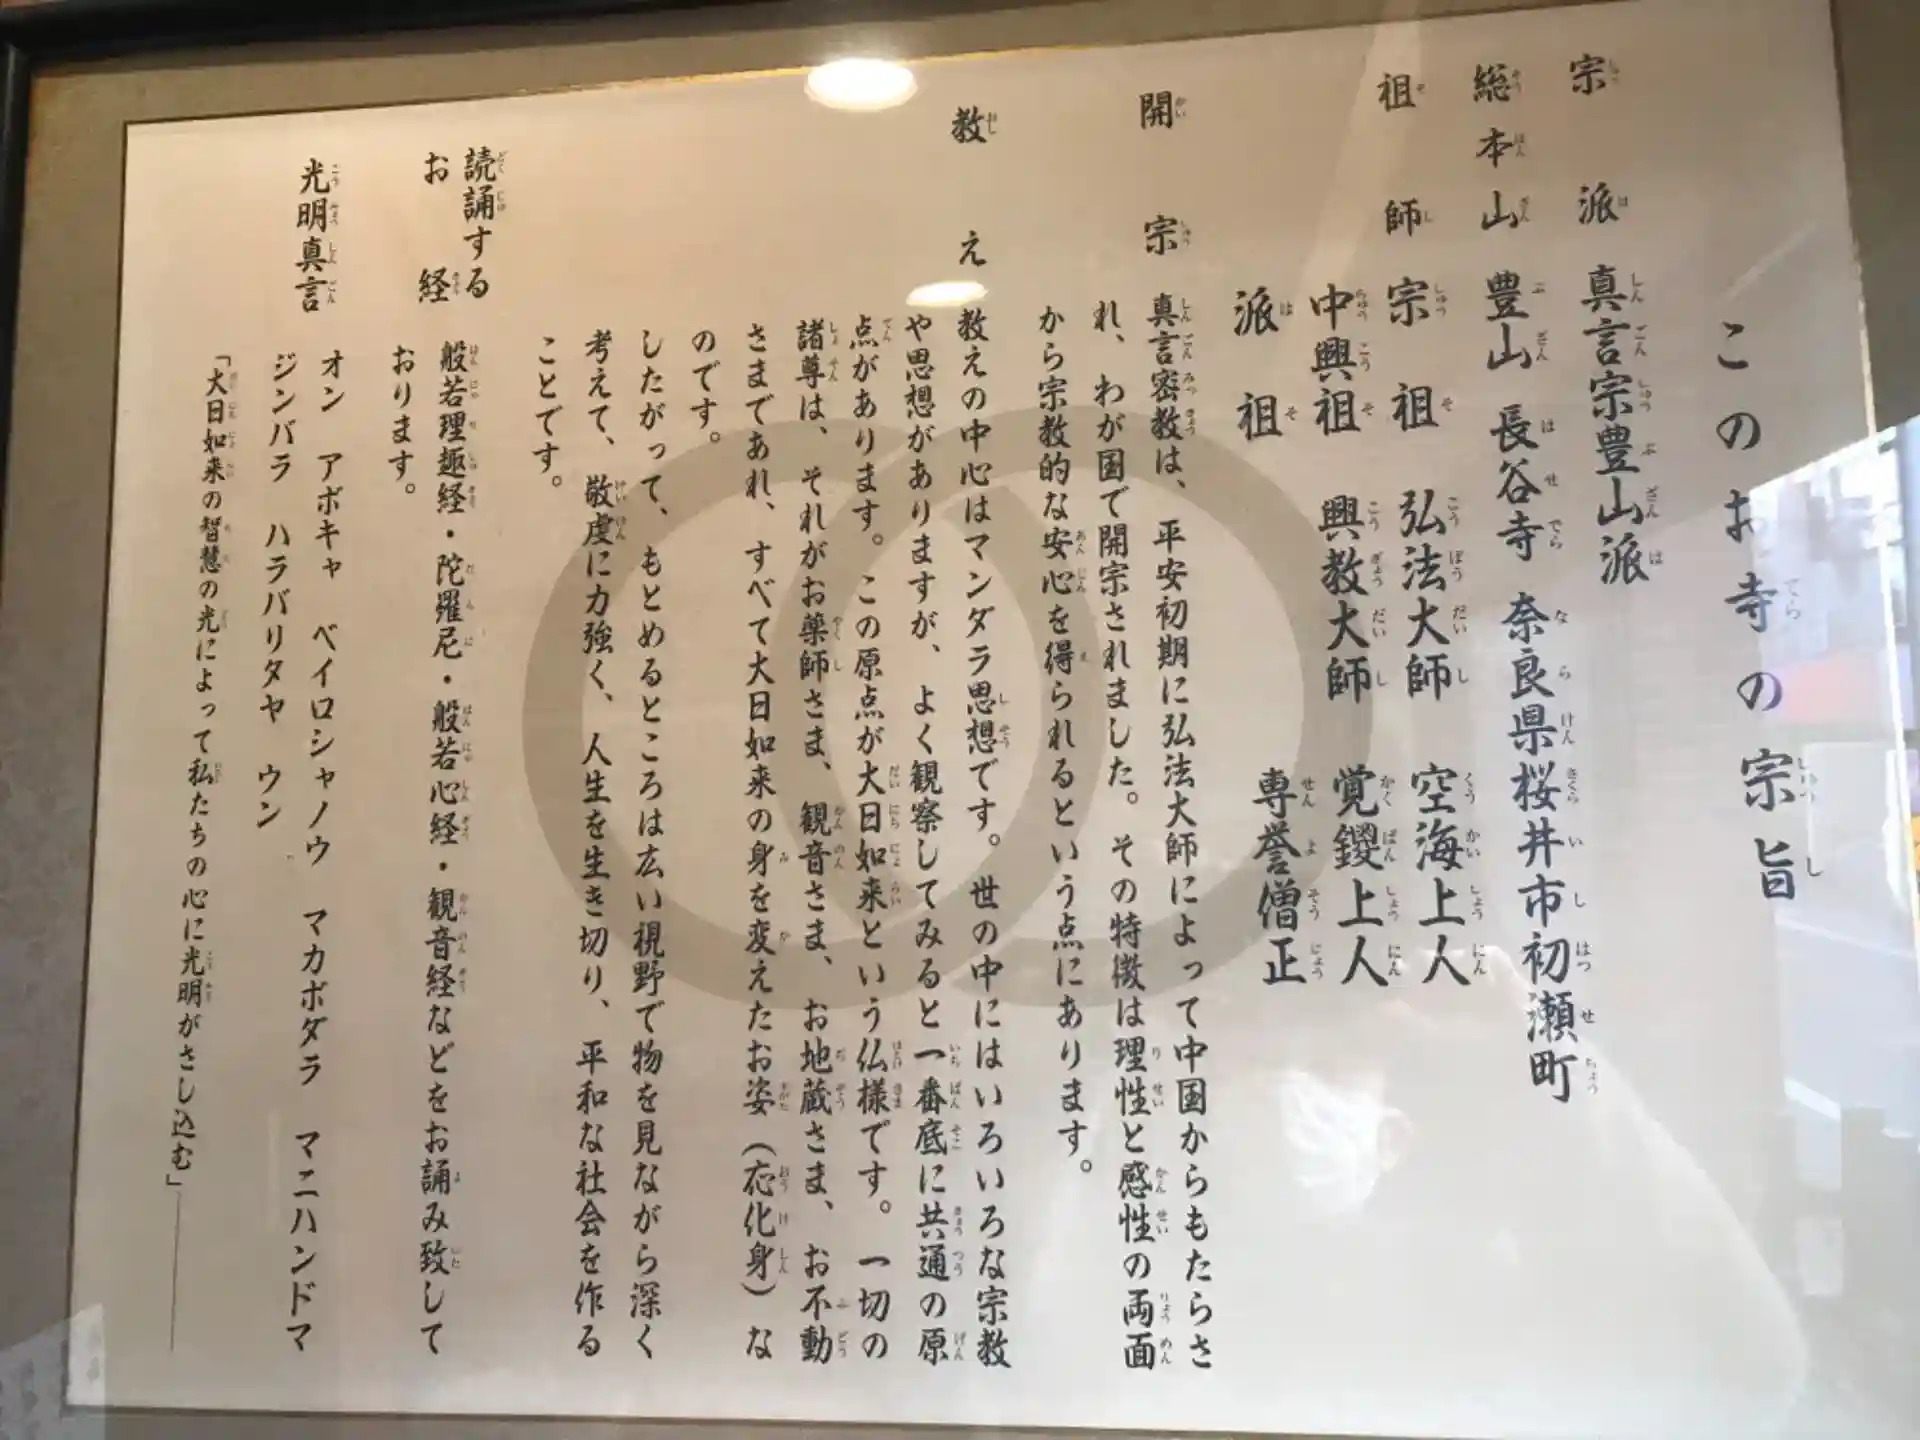 このお寺の宗旨
宗派 真言宗豊山派
総本山 豊山 長谷寺 奈良県桜井市初瀬町
祖師 宗祖 弘法大師 空海上人
中興祖 興教大師 覚鑁上人
派祖 専誉僧正
開宗 真言密教は、平安初期に弘法大師によって中国からもたらさ
れ、わが国で開宗されました。その特徴は理性と感性の両面
から宗教的な安心を得られるという点にあります。
教え 教えの中心はマンダラ思想です。世の中にはいろいろな宗教
や思想がありますが、よく観察してみると一番底に共通の原
点があります。この原点が大日如来という仏様です。一切の
諸尊は、それがお薬師さま、観音さま、お地蔵さま、お不動
さまであれ、すべて大日如来の身を変えたお姿(応化身)な
のです。
したがって、もとめるところは広い視野で物を見ながら深く
考えて、敬虔に力強く、人生を生き切り、平和な社会を作る
ことです。
読誦する
お経 般若理趣経・陀羅尼・般若心経・観音経などをお誦み致して
おります。
光明真言 オン アボキャ ベイロシャノウ マカボダラ マニハンドマ
ジンバラ ハラバリタヤ ウン
「大日如来の智慧の光によって私たちの心に光明がさし込む」